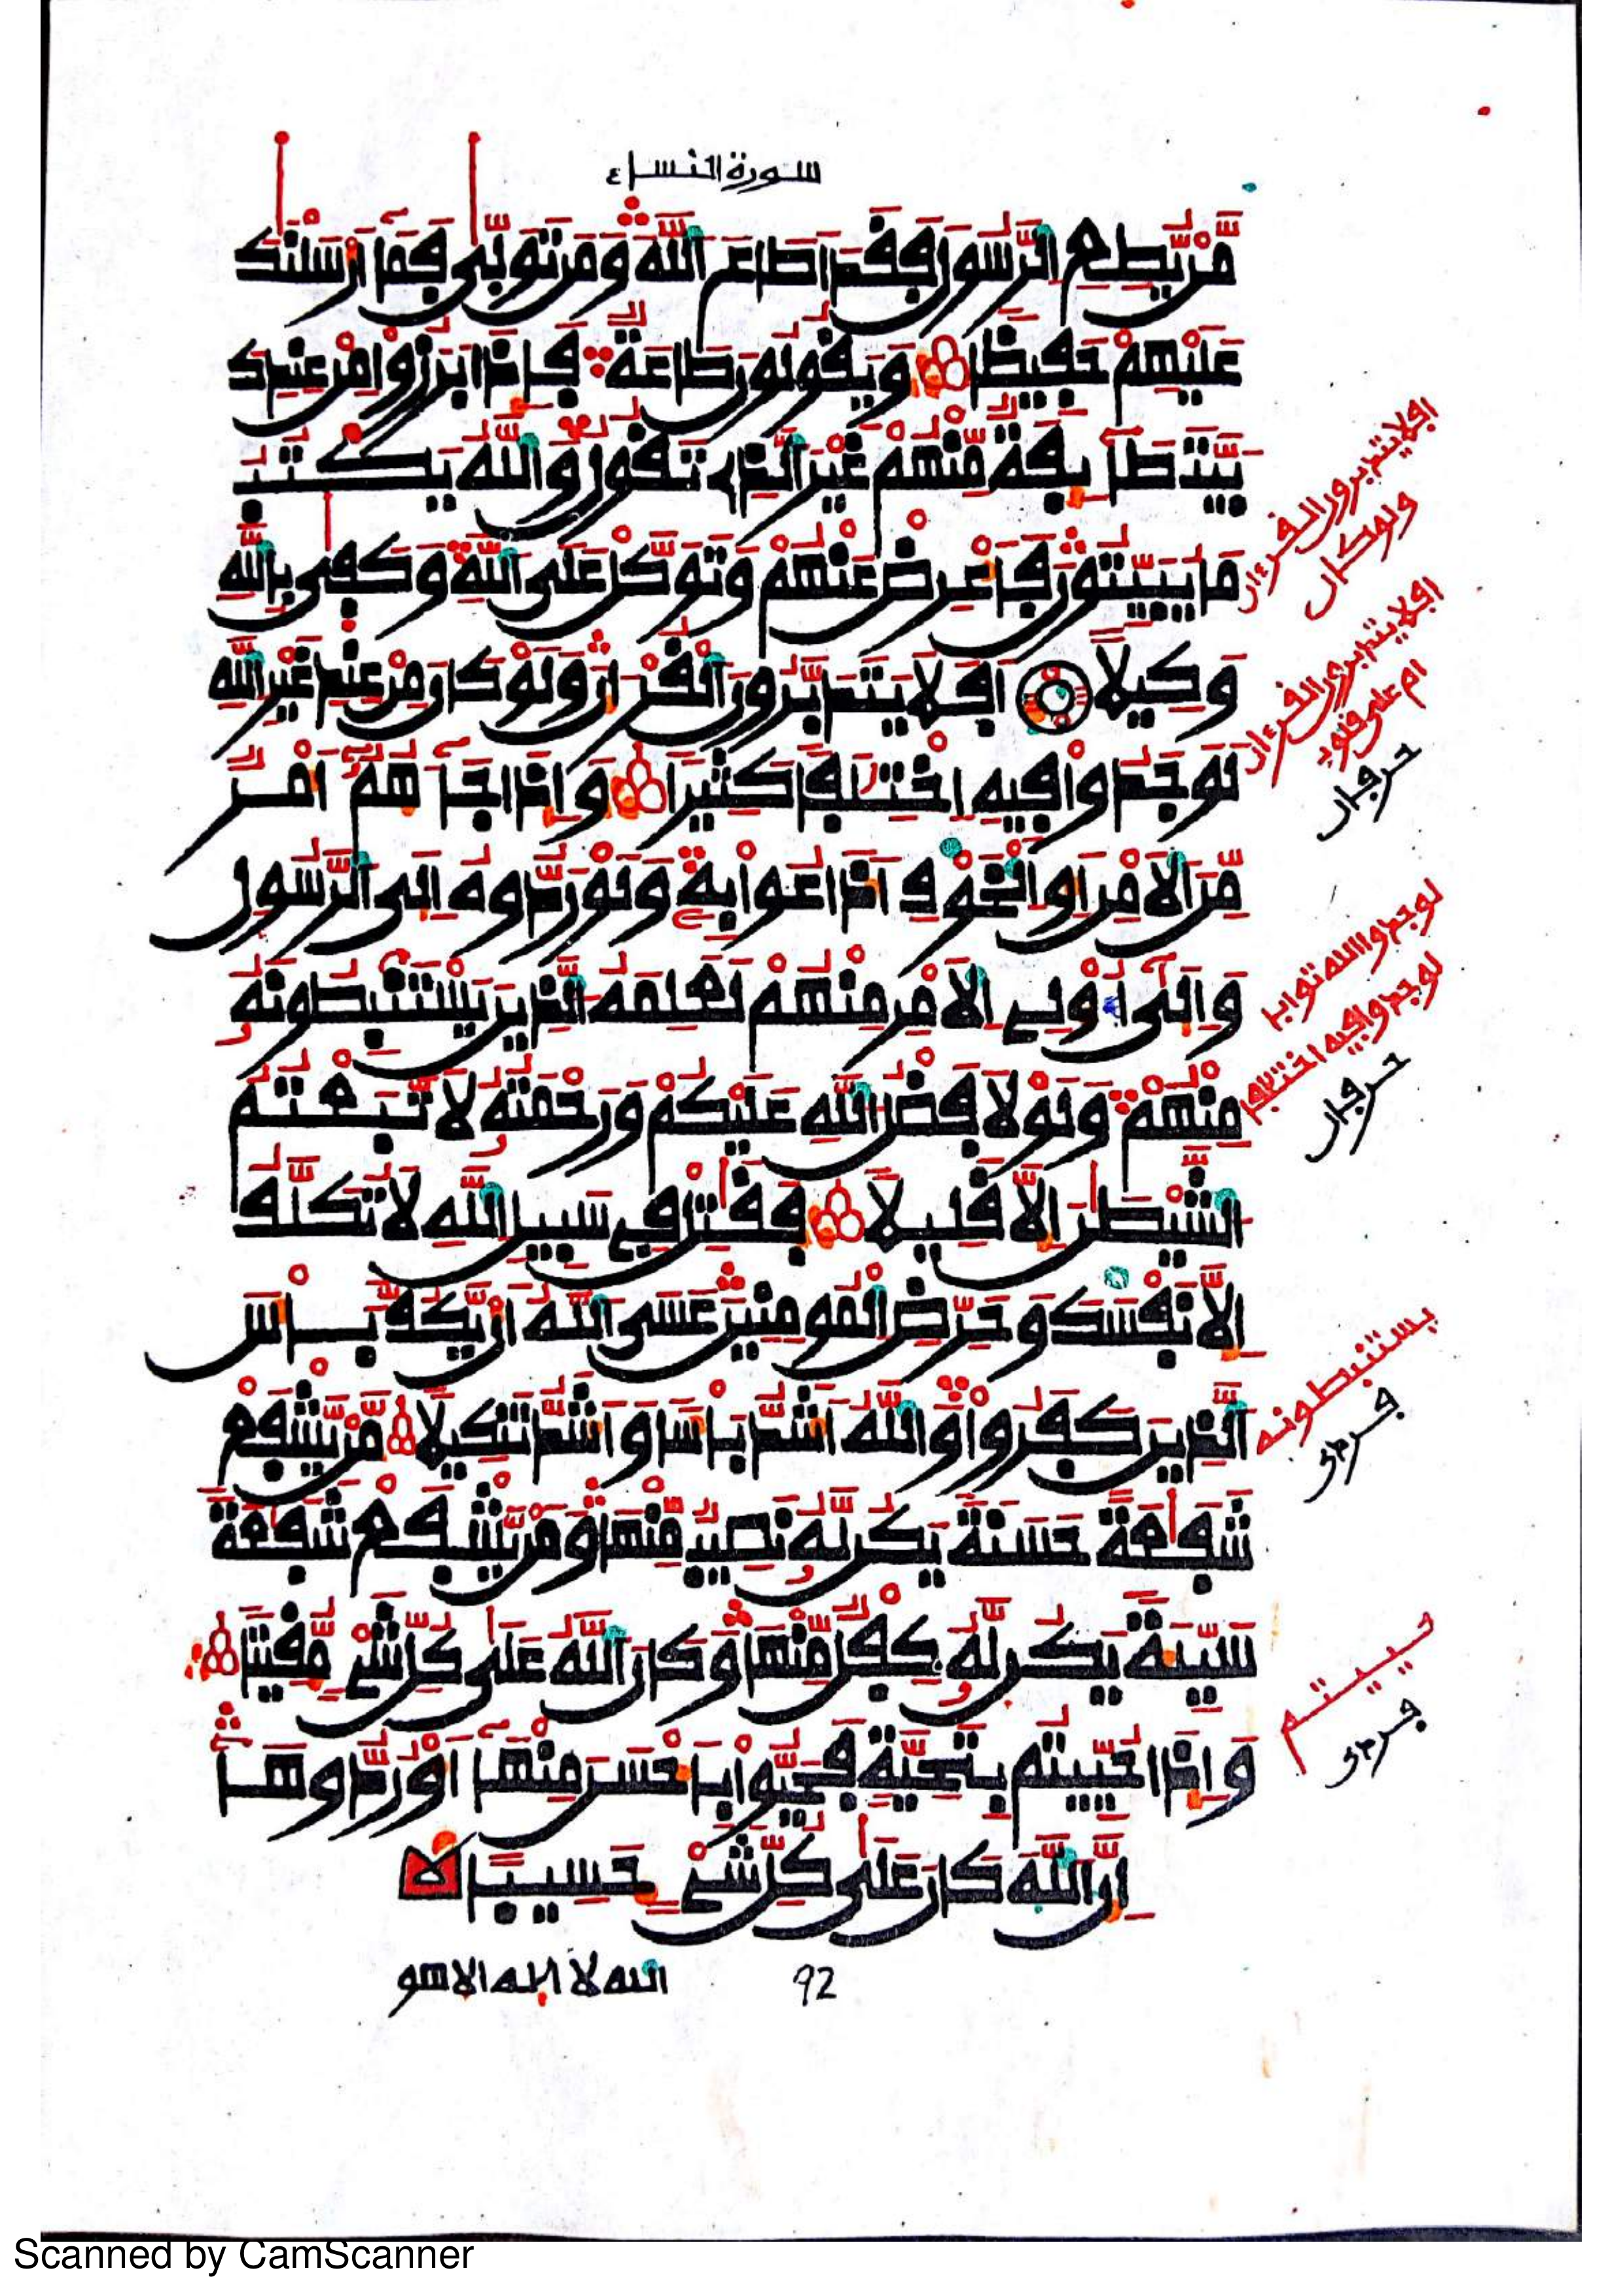 سورة النساء
مَّنْ يُّطِعِ الرَّسُولَ فَقَدَ اَطَاعَ اَللَّهَ وَمَن تَوَلّٰى فَمَآ أَرْسَلْنَٰكَ
عَلَيْهِمْ حَفِيظًا وَيَقُولُونَ طَاعَةٌ فَإِذَا بَرَزُواْ مِنْ عِندِكَ
بَيَّتَ طَآئِفَةٌ مِّنْهُمْ غَيْرَ اَلَّذِے تَقُولُ وَاللَّهُ يَكْتُبُ
مَا يُبَيِّتُونَ فَأَعْرِضْ عَنْهُمْ وَتَوَكَّلْ عَلَى اَللَّهِ وَكَفٰى بِاللَّهِ
وَكِيلًا اَفَلَا يَتَدَبَّرُونَ اَلْقُرْءَانَ وَلَوْ كَانَ مِنْ عِندِ غَيْرِ اِللَّهِ
لَوَجَدُواْ فِيهِ اِخْتِلَٰفًا كَثِيرًا وَإِذَا جَآءَهُمْ أَمْرٌ
مِّنَ اَلَامْنِ أَوِ اِلْخَوْفِ أَذَاعُواْ بِهِۦ وَلَوْ رَدُّوهُ إِلَى اَلرَّسُولِ
وَإِلَىٰٓ أُوْلِے اِلَامْرِ مِنْهُمْ لَعَلِمَهُ اُلَّذِينَ يَسْتَنۢبِطُونَهُۥ
مِنْهُمْ وَلَوْلَا فَضْلُ اُللَّهِ عَلَيْكُمْ وَرَحْمَتُهُۥ لَاتَّبَعْتُمُ
اُلشَّيْطَٰنَ إِلَّا قَلِيلًا فَقَٰتِلْ فِے سَبِيلِ اِللَّهِ لَا تُكَلَّفُ
إِلَّا نَفْسَكَ وَحَرِّضِ اِلْمُومِنِينَ عَسَى اَللَّهُ أَنْ يَّكُفَّ بَأْسَ
اَلَّذِينَ كَفَرُواْ وَاللَّهُ أَشَدُّ بَأْسًا وَأَشَدُّ تَنكِيلًا مَّنْ يَّشْفَعْ
شَفَٰعَةً حَسَنَةً يَكُن لَّهُۥ نَصِيبٌ مِّنْهَا وَمَنْ يَّشْفَعْ شَفَٰعَةً
سَيِّئَةً يَكُن لَّهُۥ كِفْلٌ مِّنْهَا وَكَانَ اَللَّهُ عَلَىٰ كُلِّ شَےْءٍ مُّقِيتًا
وَإِذَا حُيِّيتُم بِتَحِيَّةٍ فَحَيُّواْ بِأَحْسَنَ مِنْهَآ أَوْ رُدُّوهَآ
إِنَّ اَللَّهَ كَانَ عَلَىٰ كُلِّ شَےْءٍ حَسِيبًا
92
الله لا إله الا هو
افلا يتدبرون القرءان
ولو كان
افلا يتدبرون القرءان
ام على قلوب
حرفان
لوجدوا الله توابا
لوجدوا فيه اختلفا
حرفان
يستنبطونه
فردى
حييتم
فردى
Scanned by CamScanner